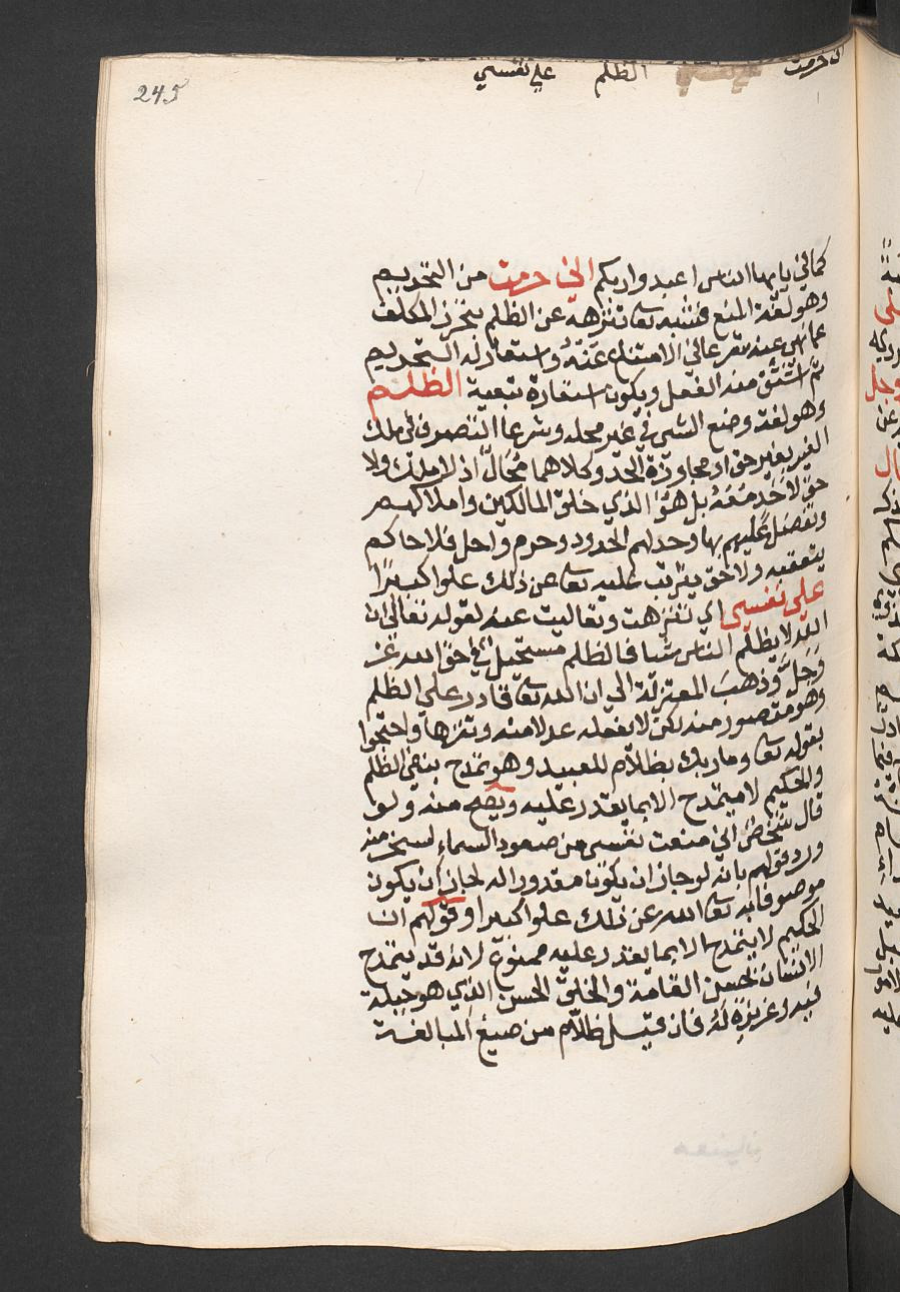 اني حرمت الظلم علي نفسي
245
كما في يا ايها الناس اعبدوا ربكم اني حرمت من التحريم
وهو لغة المنع فشبه تعا تنزهه عن الظلم بتحرز المكلف
عما نهي عنه شرعا في الامتناع عَنْهُ واستعار له التحريم
ثم اشتق منه الفعل ويكون استعارة تبعية الظلم
وهو لغة وضع الشي في غير محله وشرعا التصرف في ملك
الغير بغير حق او مجاوزة الحد وكلاهما مُحَالٌ اذ لا ملك ولا
حق لاحد مَعَهُ بل هوَ الذي خلق المالكين واملاكهم
وتفضل عليهم بها وحد لهم الحدود وحرم واحل فلا حاكم
يتعقبه ولا حق يترتب عليه تعا عن ذلك علوا كبيرًا
علي نفسي اي تنزهت وتعاليت عنه لقوله تعالي ان
الله لا يظلم الناس شيا فالظلم مستحيل في حق الله عز
وَجَلَّ وذهبَ المعتزلة الي ان الله تعا قادر علي الظلم
وهو متصور منه لكن لا يفعله عدلا منه وتنزها واحتجوا
بقوله تعا وما ربك بظلام للعبيد وهو تمدح بنفي الظلم
والحكيم لا يتمدح الا بما يقدر عليه ويصح منه ولو
قال شخص اني منعت نفسي من صعود السماء لسخر منه
ورد قولهم بانه لو جاز ان يكون مقدورا له لجاز ان يكون
موصوفا به تعا الله عن ذلك علوا كبيرا وقولهم ان
الحكيم لا يتمدح الا بما يقدر عليه ممنوع لانه قد يتمدح
الانسان بحسن القامة والخلق الحسن الذي هو جبلة
فيه وغريزة لَهُ فان قيل ظلام من صيغ المبالغة